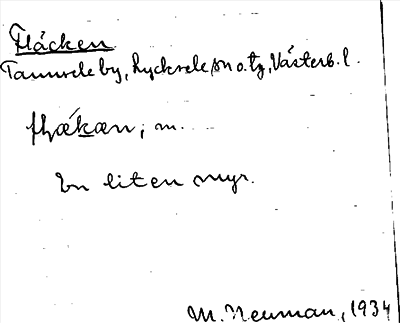 Fläcken
Tannsele by, Lycksele sn o. tg, Västerb. l.
flækan, m.
En liten myr.
M. Neuman, 1934